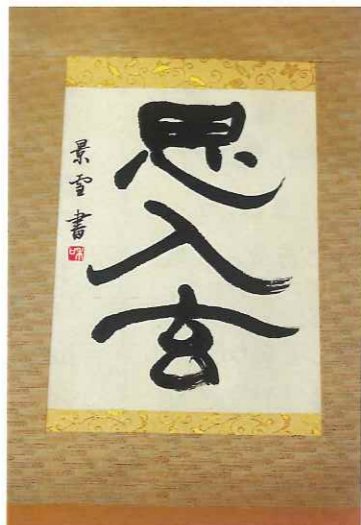 思入玄
景雪書